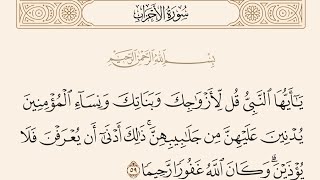 سُورَةُ الأَحْزَابِ
بِسْمِ اللَّهِ الرَّحْمَٰنِ الرَّحِيمِ
يَـٰٓأَيُّهَا النَّبِيُّ قُل لِّأَزْوَٰجِكَ وَبَنَاتِكَ وَنِسَآءِ الْمُؤْمِنِينَ
يُدْنِينَ عَلَيْهِنَّ مِن جَلَـٰبِيبِهِنَّ ۚ ذَٰلِكَ أَدْنَىٰٓ أَن يُعْرَفْنَ فَلَا
يُؤْذَيْنَ ۗ وَكَانَ اللَّهُ غَفُورًا رَّحِيمًا ٥٩